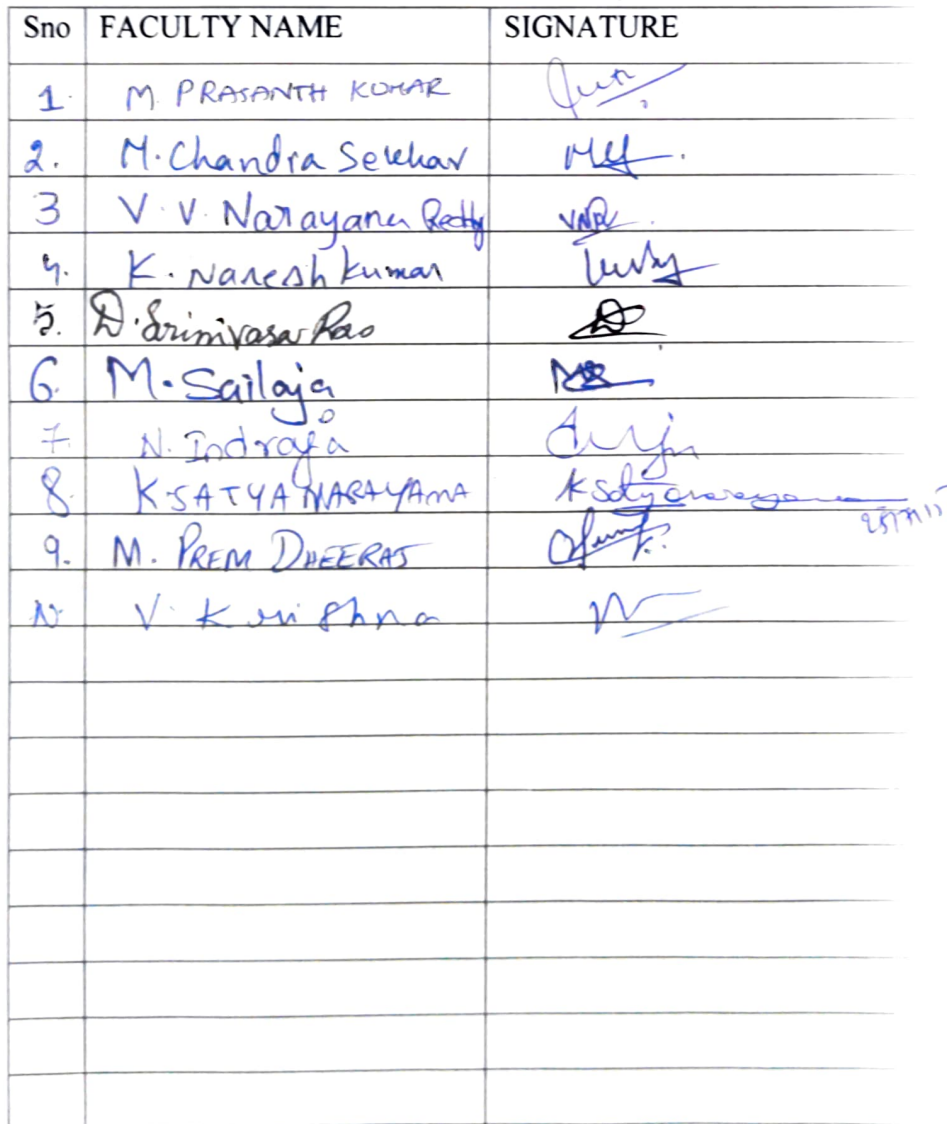 Sno FACULTY NAME SIGNATURE
1. M. PRASANTH KUMAR
2. M. Chandra Sekhar
3 V. V. Narayana Reddy VNR
4. K. Naresh Kumar
5. D. Srinivasa Rao
6. M. Sailaja
7. N. Indraja
8. K. SATYA NARAYANA K Satyanarayana
9. M. PREM DHEERAJ
V. Krishna